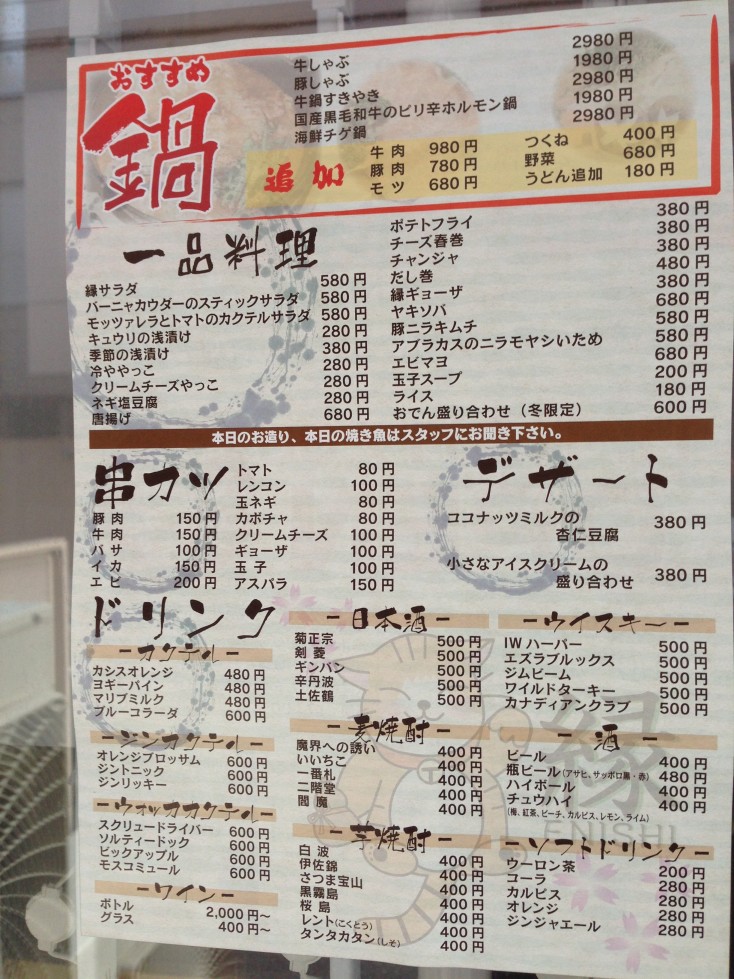 おすすめ
鍋
牛しゃぶ 2980円
豚しゃぶ 1980円
牛鍋すきやき 2980円
国産黒毛和牛のピリ辛ホルモン鍋 1980円
海鮮チゲ鍋 2980円
追加
牛肉 980円
豚肉 780円
モツ 680円
つくね 400円
野菜 680円
うどん追加 180円
一品料理
縁サラダ 580円
バーニャカウダーのスティックサラダ 580円
モッツァレラとトマトのカクテルサラダ 580円
キュウリの浅漬け 280円
季節の浅漬け 380円
冷ややっこ 280円
クリームチーズやっこ 280円
ネギ塩豆腐 280円
唐揚げ 680円
ポテトフライ 380円
チーズ春巻 380円
チャンジャ 380円
だし巻 480円
縁ギョーザ 380円
ヤキソバ 680円
豚ニラキムチ 580円
アブラカスのニラモヤシいため 580円
エビマヨ 680円
玉子スープ 200円
ライス 180円
おでん盛り合わせ（冬限定） 600円
本日のお造り、本日の焼き魚はスタッフにお聞き下さい。
串カツ
豚肉 150円
牛肉 150円
バサ 100円
イカ 150円
エビ 200円
トマト 80円
レンコン 100円
玉ネギ 80円
カボチャ 80円
クリームチーズ 100円
ギョーザ 100円
玉子 100円
アスパラ 150円
デザート
ココナッツミルクの
杏仁豆腐 380円
小さなアイスクリームの
盛り合わせ 380円
ドリンク
-カクテル-
カシスオレンジ 480円
ヨギーパイン 480円
マリブミルク 480円
ブルーコラーダ 600円
-ジンカクテル-
オレンジブロッサム 600円
ジントニック 600円
ジンリッキー 600円
-ウォッカカクテル-
スクリュードライバー 600円
ソルティードック 600円
ビックアップル 600円
モスコミュール 600円
-ワイン-
ボトル 2,000円〜
グラス 400円〜
-日本酒-
菊正宗 500円
剣菱 500円
ギンパン 500円
辛丹波 500円
土佐鶴 500円
-麦焼酎-
魔界への誘い 400円
いいちこ 400円
一番札 400円
二階堂 400円
閻魔 400円
-芋焼酎-
白波 400円
伊佐錦 400円
さつま宝山 400円
黒霧島 400円
桜島 400円
レント(こくとう) 400円
タンタカタン(しそ) 400円
-ウイスキー-
IWハーパー 500円
エズラブルックス 500円
ジムビーム 500円
ワイルドターキー 500円
カナディアンクラブ 500円
-酒-
ビール 400円
瓶ビール(アサヒ、サッポロ黒・赤) 480円
ハイボール 400円
チュウハイ 400円
(梅、紅茶、ピーチ、カルピス、レモン、ライム)
-ソフトドリンク-
ウーロン茶 200円
コーラ 280円
カルピス 280円
オレンジ 280円
ジンジャエール 280円
縁
ENISHI